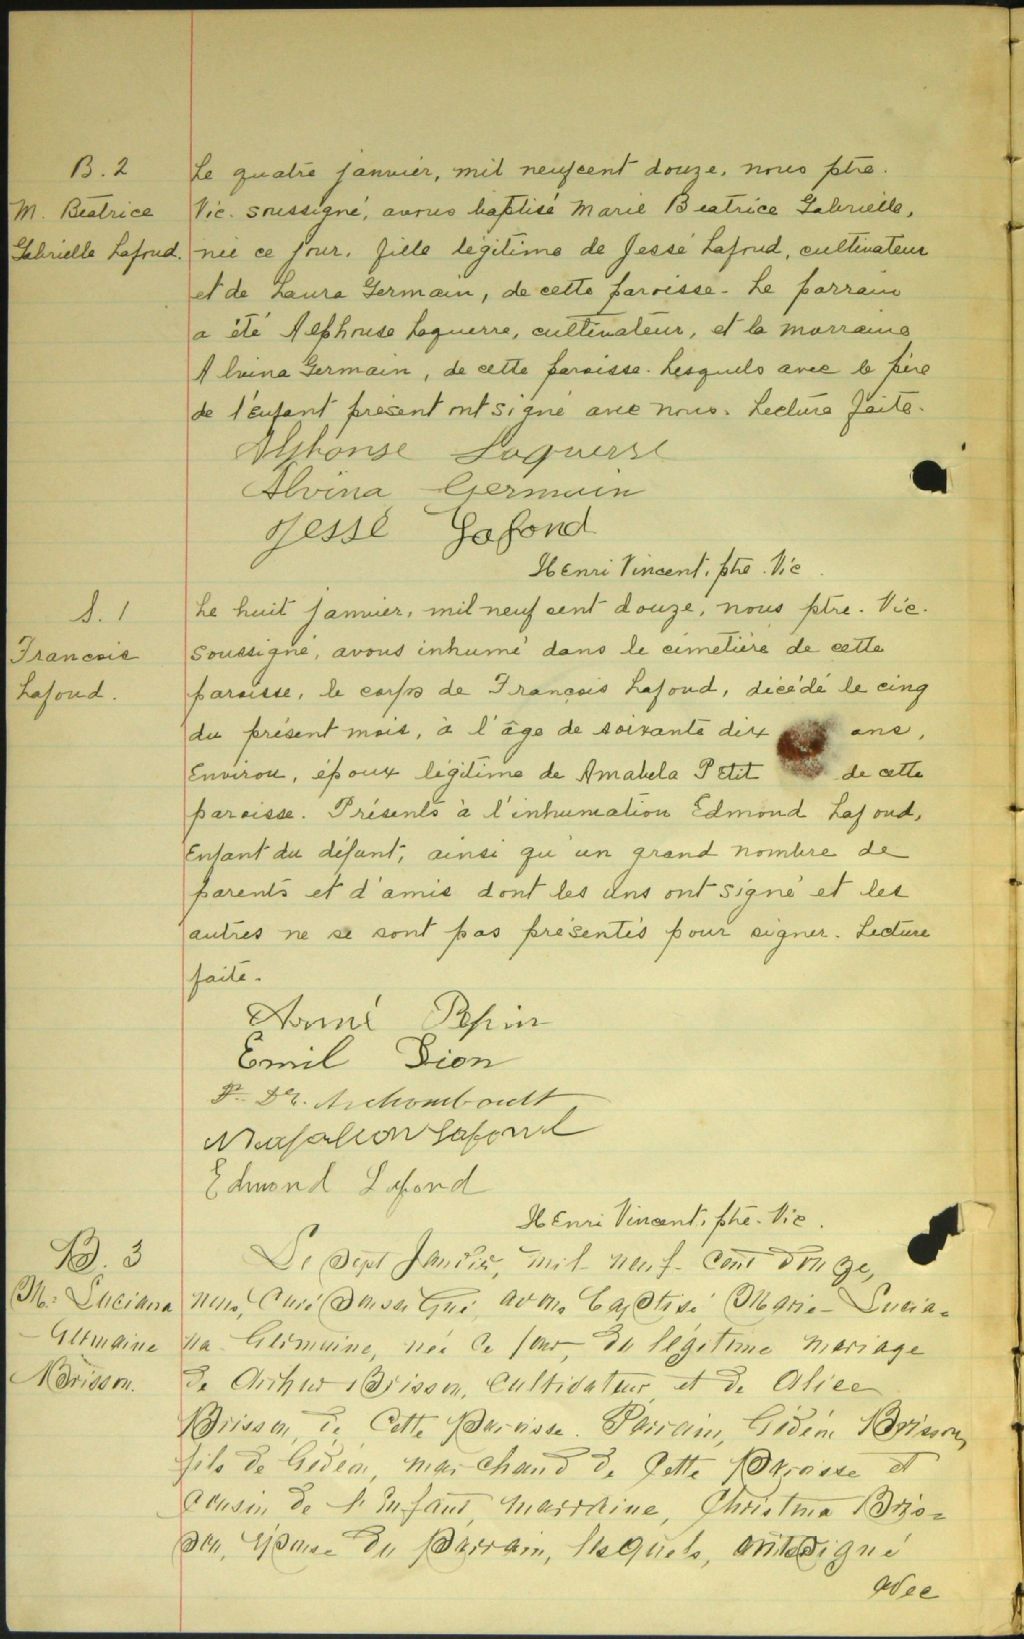 B. 2
M. Béatrice
Gabrielle Lafond.
Le quatre janvier, mil neufcent douze, nous ptre.
Vic. soussigné, avons baptisé Marie Beatrice Gabrielle,
née ce jour, fille légitime de Jessé Lafond, cultivateur
et de Laura Germain, de cette paroisse. Le parrain
a été Alphonse Laguerre, cultivateur, et la marraine
Alvina Germain, de cette paroisse. Lesquels avec le père
de l'enfant présent ont signé avec nous. Lecture faite.
Alphonse Laguerre
Alvina Germain
Jessé Lafond
Henri Vincent, ptre. Vic.
S. 1
Francois
Lafond.
Le huit janvier, mil neuf cent douze, nous ptre. Vic.
soussigné, avons inhumé dans le cimetière de cette
paroisse, le corps de François Lafond, décédé le cinq
du présent mois, à l'âge de soixante dix ans,
environ, époux légitime de Amabela Petit de cette
paroisse. Présents à l'inhumation Edmond Lafond,
Enfant du défunt, ainsi qu'un grand nombre de
parents et d'amis dont les uns ont signé et les
autres ne se sont pas présentés pour signer. Lecture
faite.
Aimé Pepin
Emil Dion
Archambault
Napoléon Lafond
Edmond Lafond
Henri Vincent, ptre. Vic.
B. 3
M. Luciana
Germaine
Brisson.
Le Sept Janvier, mil neuf cent douze,
nous, Curé Soussigné, avons baptisé Marie-Lucia=
na Germaine, née ce jour, du légitime mariage
de Arthur Brisson, Cultivateur et de Alice
Brisson, de Cette Paroisse. Parrain, Gédéon Brisson,
fils de Gédéon, marchand de Cette Paroisse et
Cousin de l'Enfant, marraine, Christina Bris=
son, épouse du Parrain, lesquels, ont signé
avec